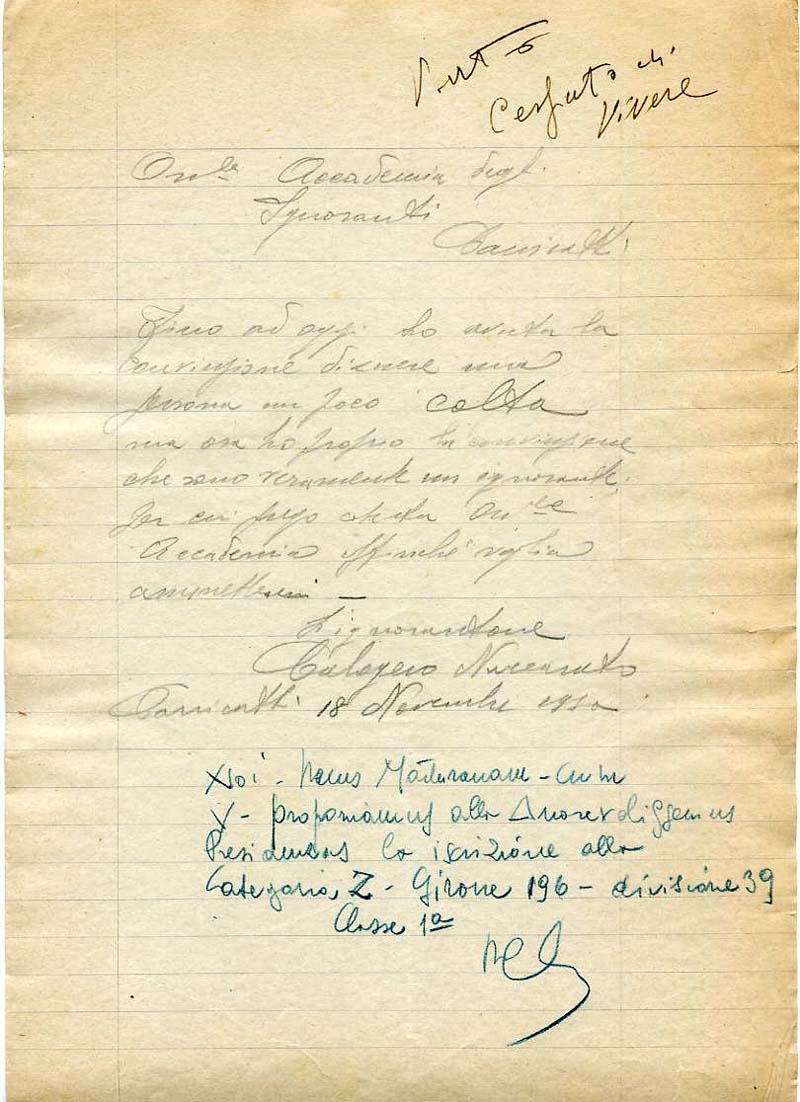 Visto
di
Vivere
On.le Accademia degl.
Ignoranti
Canicatti
Fino ad oggi ho avuta la
convinzione di essere una
persona un poco colta
ma ora ho proprio la convinzione
che sono veramente un ignorante.
Per cui prego On.le
Accademia affinché voglia
ammettermi —
L'ignorantone
Calogero
Canicatti 18 Novembre
Noi -
proponiamus alla
la iscrizione alla
Categoria Z - Girone 196 - divisione 39
Classe 1a